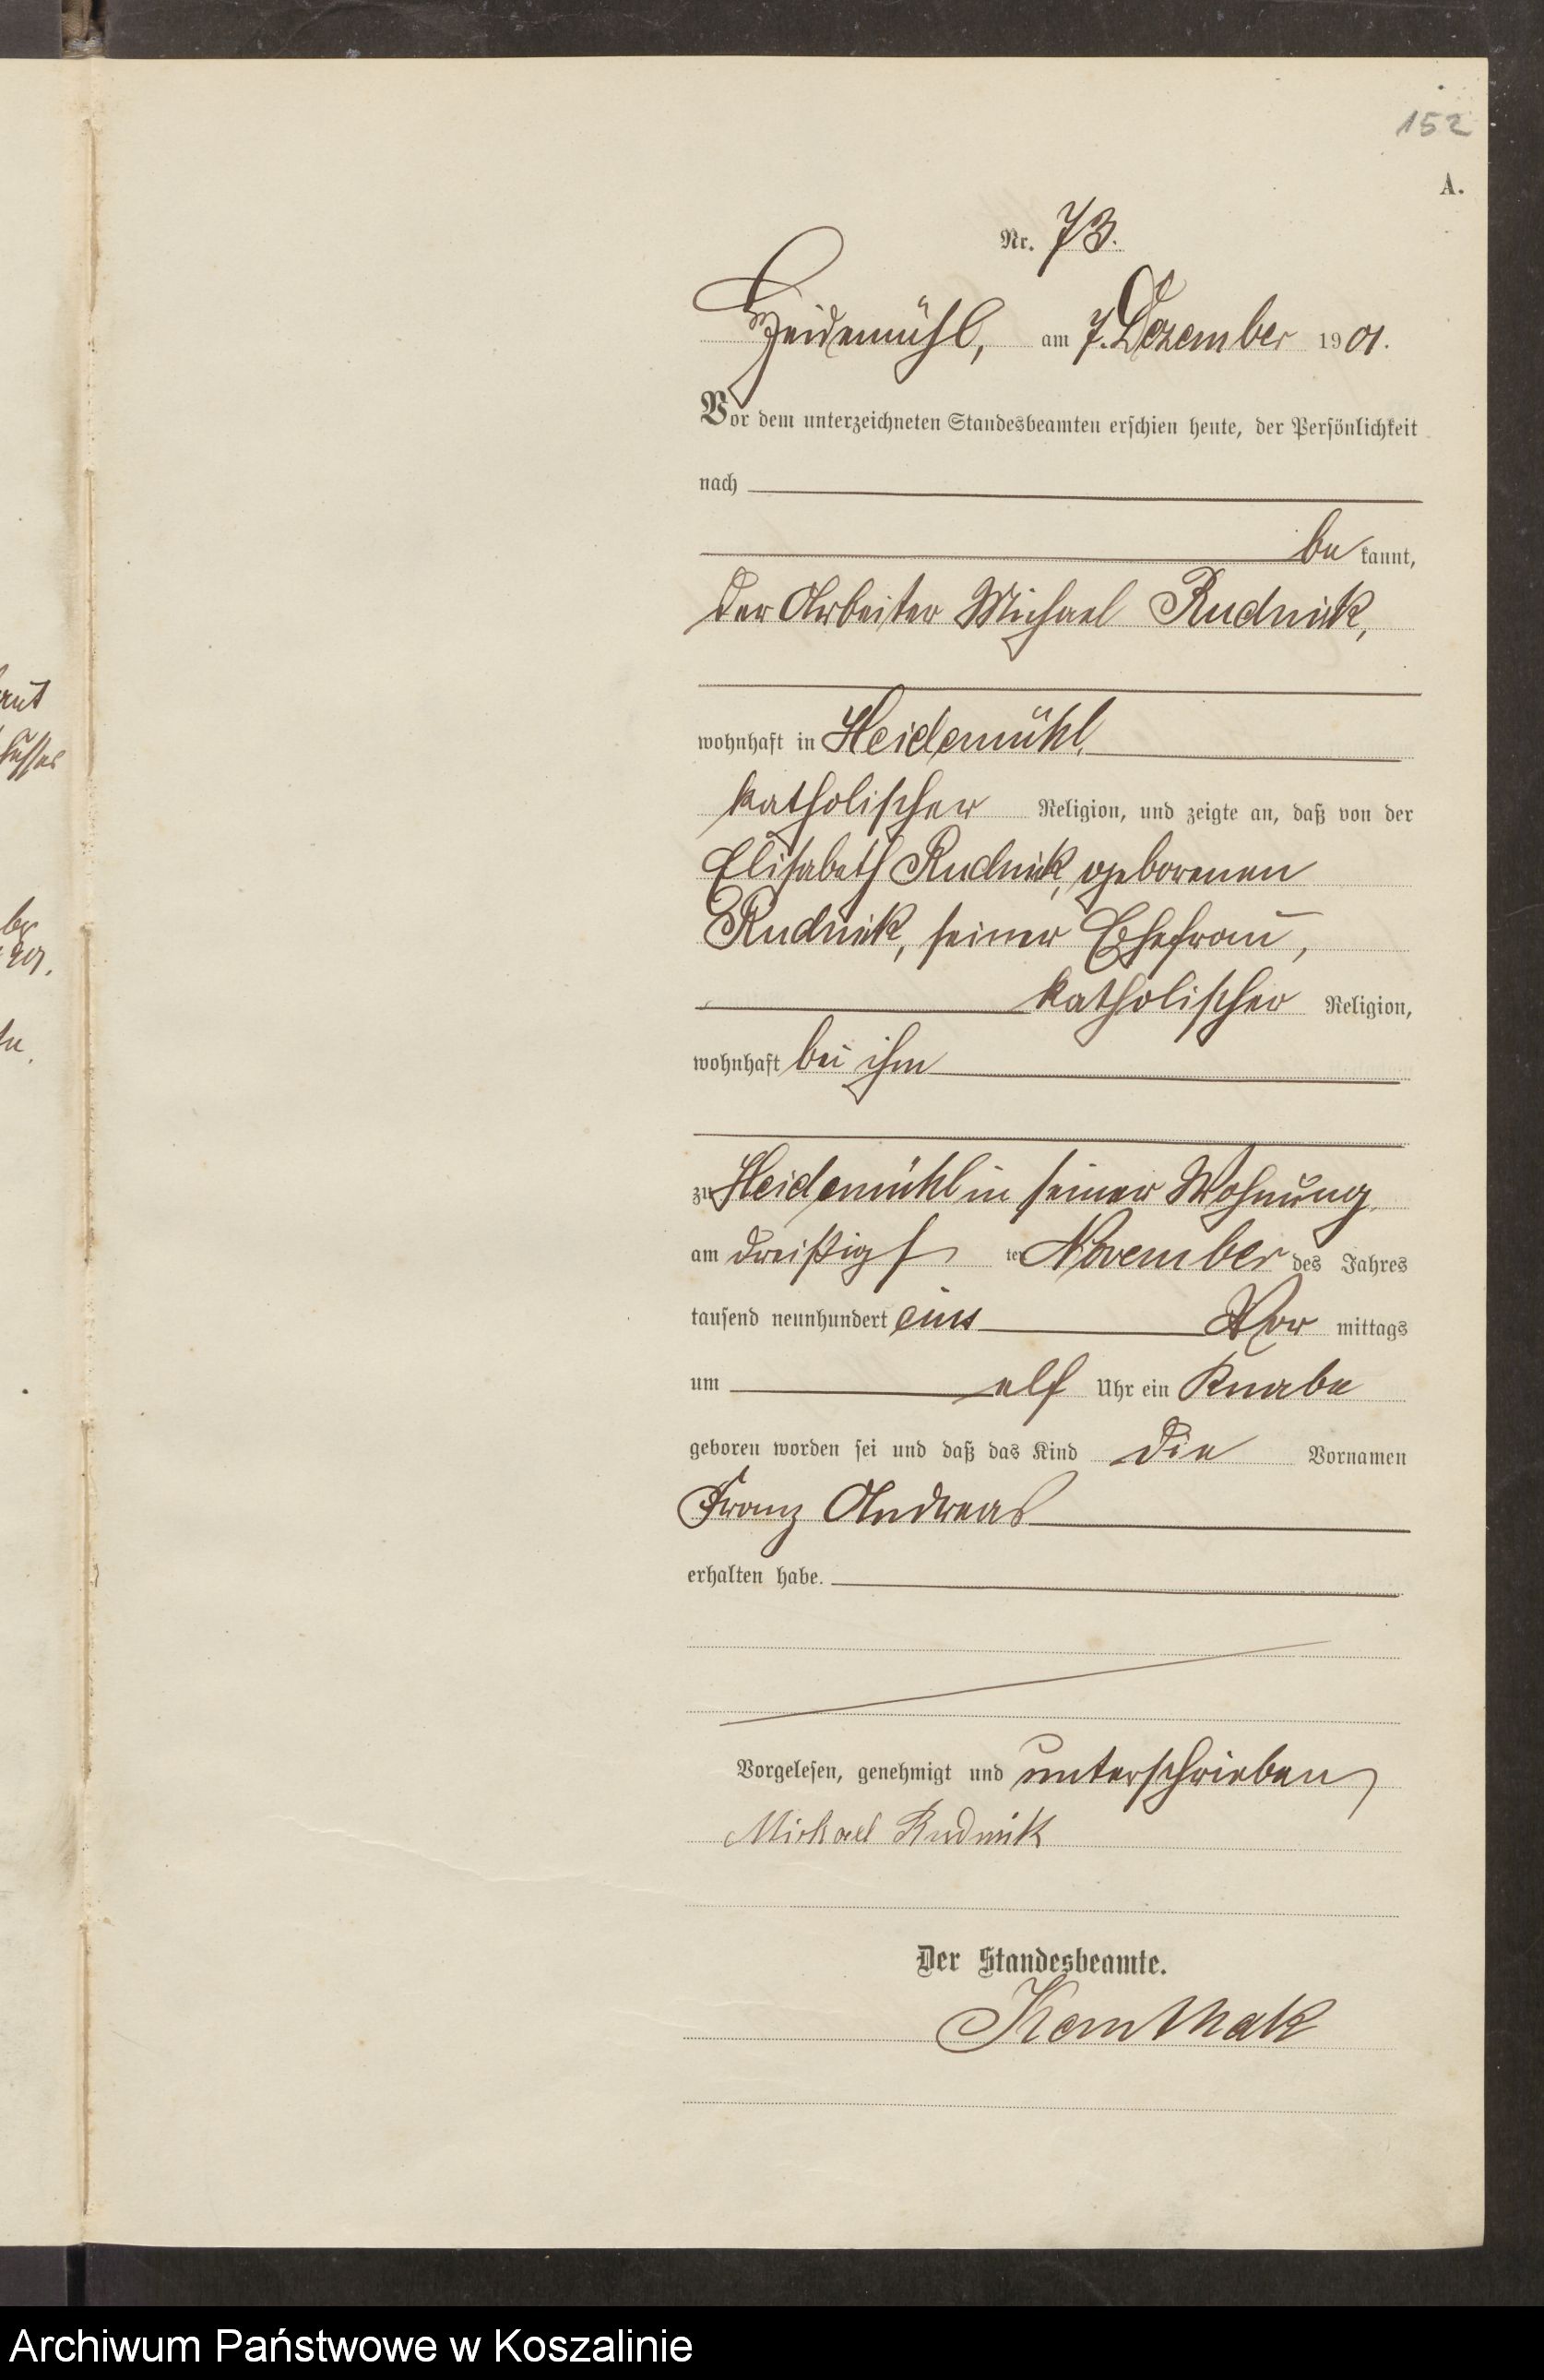 152
A.
Nr. 73.
Heidemühl, am 7. Dezember 1901.
Vor dem unterzeichneten Standesbeamten erschien heute, der Persönlichkeit
nach
be kannt,
der Arbeiter Michael Rudnik,
wohnhaft in Heidemühl,
katholischer Religion, und zeigte an, daß von der
Elisabeth Rudnik, geborenen
Rudnik, seiner Ehefrau,
katholischer Religion,
wohnhaft bei ihm
zu Heidemühl in seiner Wohnung
am dreißigsten November des Jahres
tausend neunhundert eins Vor mittags
um elf Uhr ein Knabe
geboren worden sei und daß das Kind die Vornamen
Franz Andreas
erhalten habe.
Vorgelesen, genehmigt und unterschrieben
Michael Rudnik
Der Standesbeamte.
Archiwum Państwowe w Koszalinie